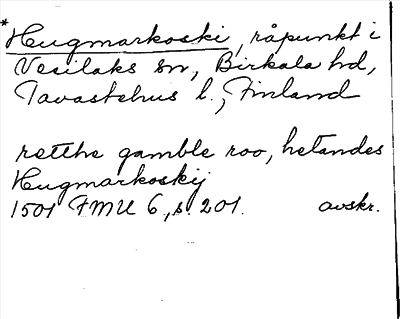 *Hugmarkoski, råpunkt i
Vesilaks sn, Birkala hd,
Tavastehus l., Finland
retthe gamble roo, hetandes
Hugmarkoskij
1501 FMU 6, s. 201. avskr.